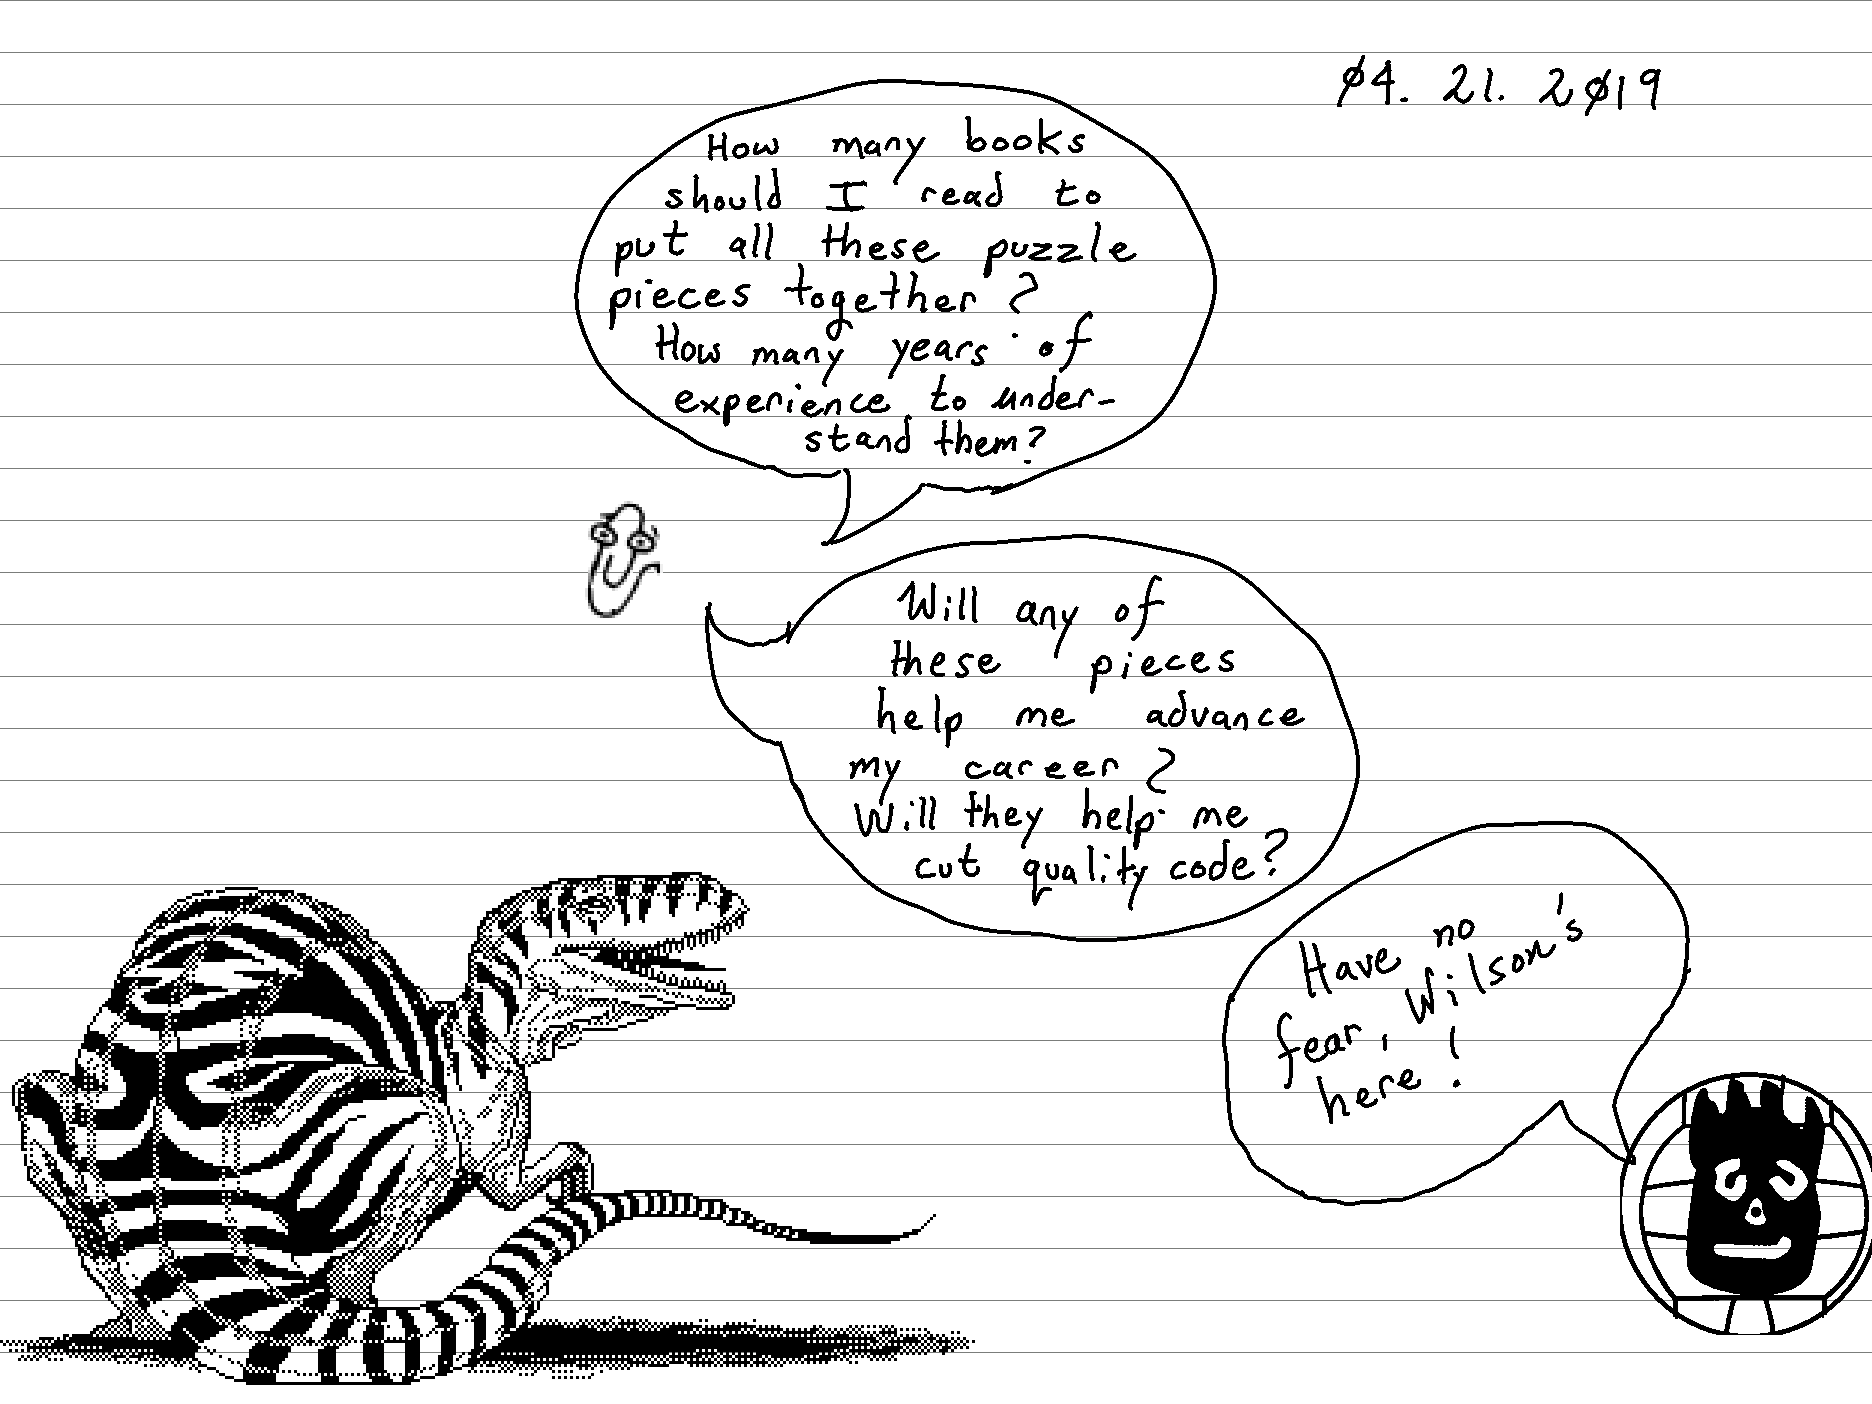 04. 21. 2019
How many books
should I read to
put all these puzzle
pieces together?
How many years of
experience to under-
stand them?
Will any of
these pieces
help me advance
my career?
Will they help me
cut quality code?
Have no
fear, Wilson's
here!